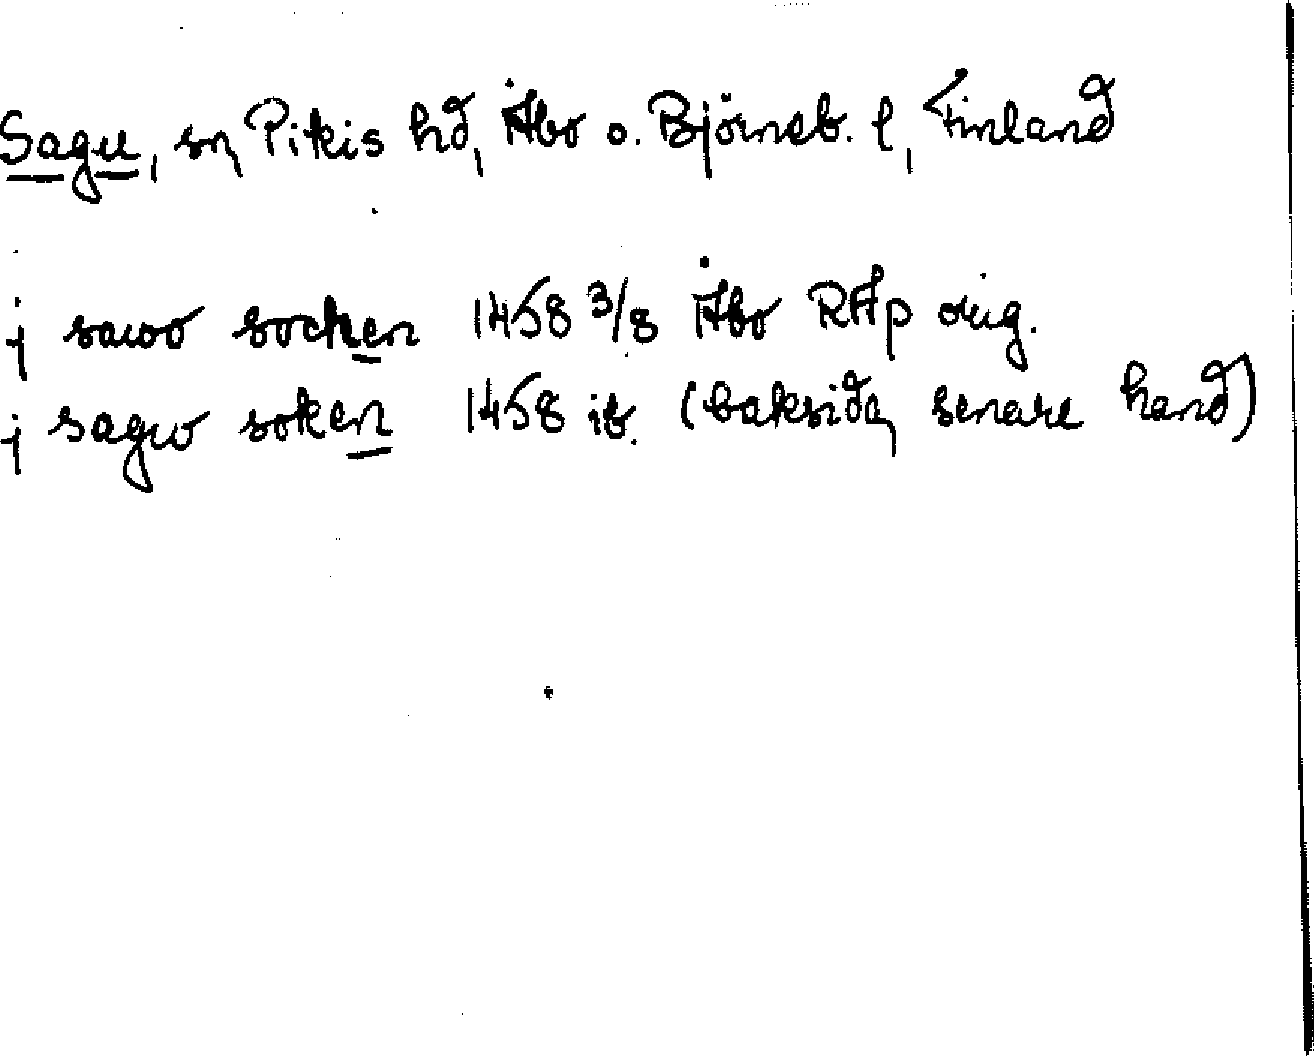 Sagu, sn, Pikis hd, Åbo o. Björneb. l, Finland
j sawo socken 1458 3/8 Åbo RAp orig.
j sagw soken 1458 ib. (baksida, senare hand)